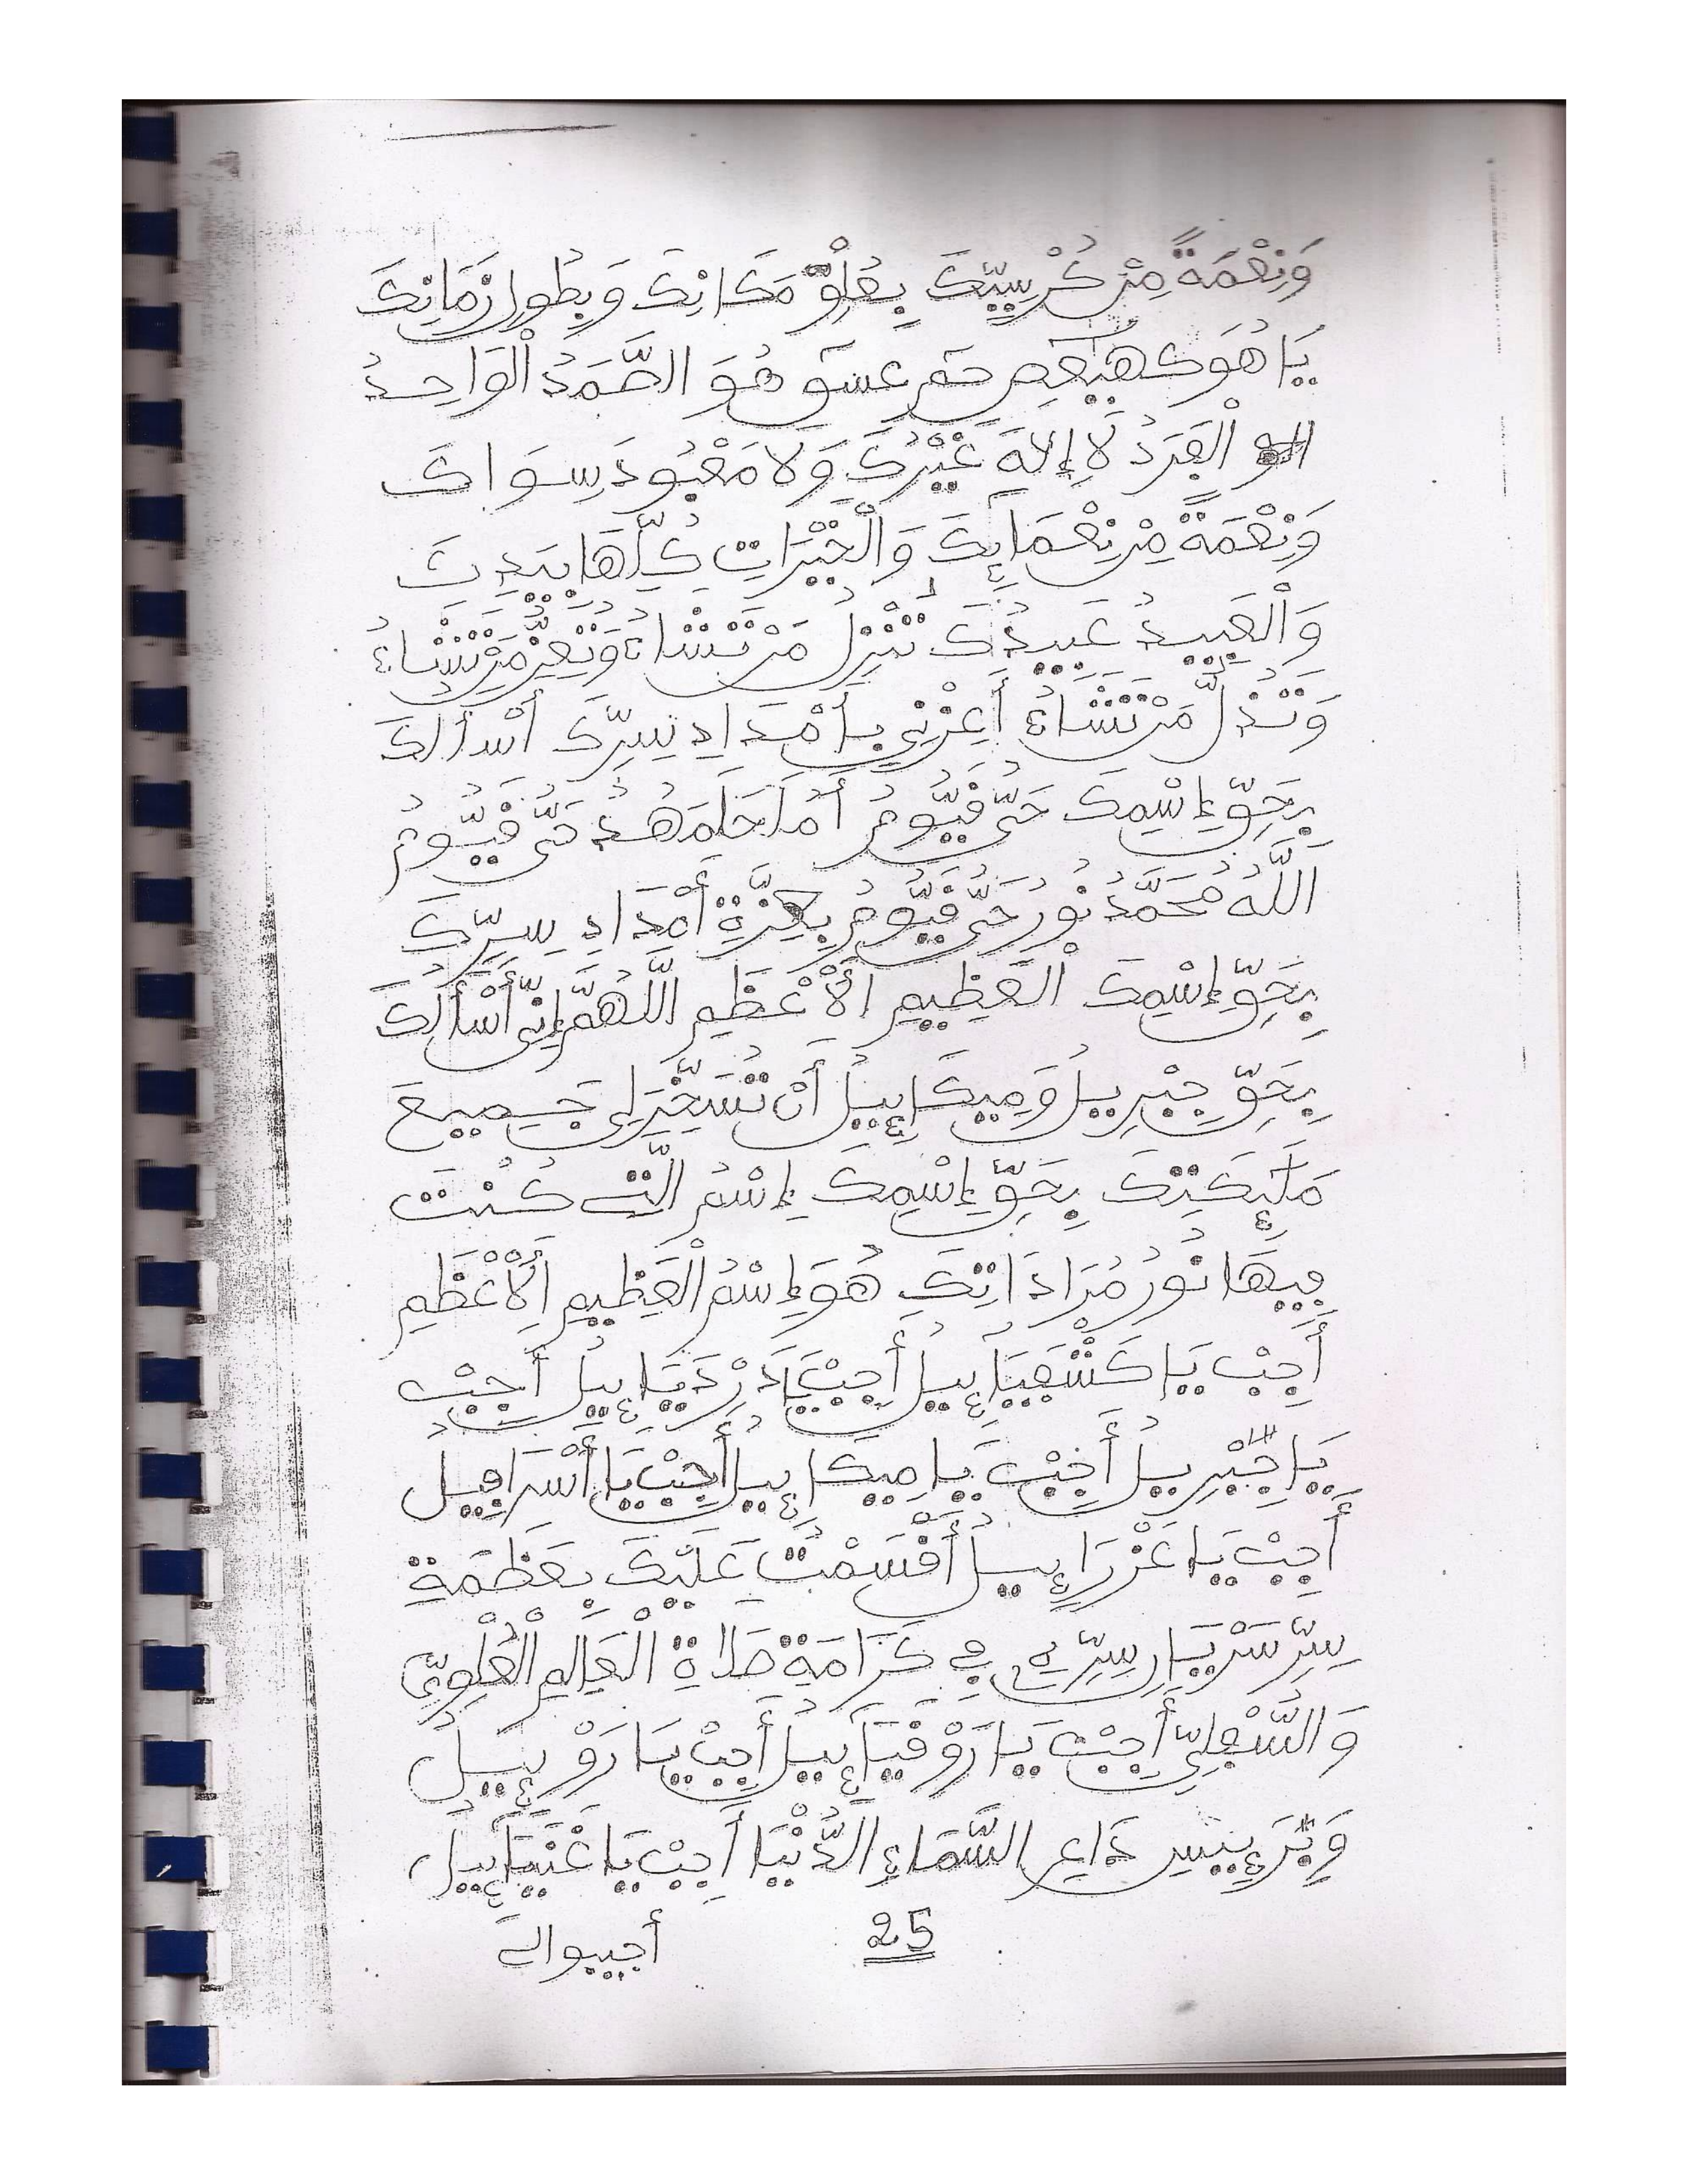 وَنِعْمَةً مِنْ كُرْسِيِّكَ بِعُلُوِّ مَكَانِكَ وَبِطُولِ زَمَانِكَ
يَا هُوَ كهيعص حم عسق هُوَ الصَّمَدُ الْوَاحِدُ
الْفَرَدُ لَا إِلَهَ غَيْرُكَ وَلَا مَعْبُودَ سِوَاكَ
وَنِعْمَةً مِنْ نِعْمَائِكَ وَالْخَيْرَاتِ كُلَّهَا بِيَدِكَ
وَالْعَبِيدُ عَبِيدُكَ تُنْزِلُ مَنْ تَشَاءُ وَتُعِزُّ مَنْ تَشَاءُ
وَتُذِلُّ مَنْ تَشَاءُ أَعِزْنِي بِأَمْدَادِ سِرِّكَ أَسْأَلُكَ
بِحَقِّ إِسْمِكَ حَيٌّ قَيُّومُ حَيٌّ قَيُّومُ
اَللَّهُ مُحَمَّدُ نُورُ حَيٌّ قَيُّومُ بِعِزَّةِ أَمْدَادِ سِرِّكَ
بِحَقِّ إِسْمِكَ الْعَظِيمِ اَلْأَعْظَمِ اللَّهُمَّ إِنِّي أَسْأَلُكَ
بِحَقِّ جِبْرِيلُ وَمِيكَائِيلُ أَنْ تُسَخِّرَلِي جَمِيعَ
مَلَئِكَتِكَ بِحَقِّ إِسْمِكَ إِسْمُ الَّتِي كُنْتَ
فِيهَا نُورُ مُرَادَاتِكَ هُوَ إِسْمُ الْعَظِيمِ اَلْأَعْظَمِ
أَجِبْ يَا كَشْفَيَائِيلُ أَجِبْ يَا دَرْدَيَائِيلُ أَجِبْ
يَا جِبْرِيلُ أَجِبْ يَا مِيكَائِيلُ أَجِبْ يَا أَسْرَافِيلُ
أَجِبْ يَا عَزْرَائِيلُ أَقْسَمْتُ عَلَيْكَ بِعَظَمَةِ
سِرِّ فِي كَرَامَةِ صَلَاةِ الْعَالَمِ الْعُلْوِيِّ
وَالسُّفْلِيِّ أَجِبْ يَا رَوْقَيَائِيلُ أَجِبْ يَا رَوْئِيَلُ
السَّمَاءِ الدُّنْيَا أَجِبْ يَا عَنْيَائِيلُ
25
أجيبوا